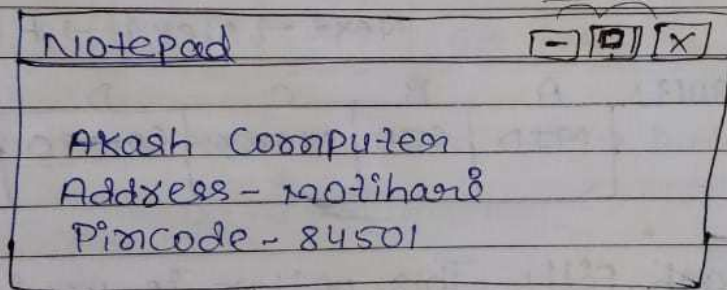 Notepad
Akash Computer
Address - Motihari
Pincode - 84501